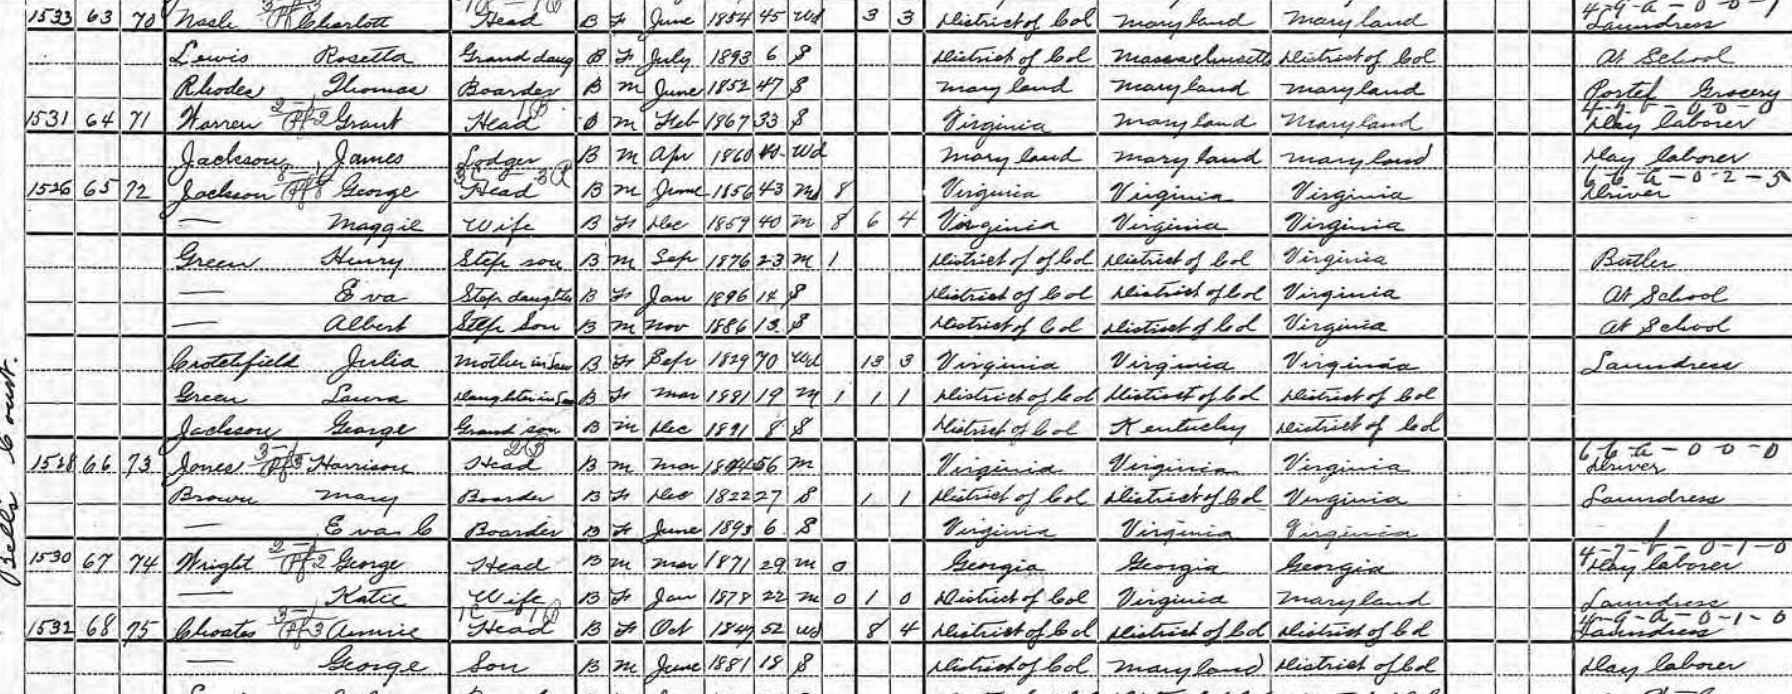 1533 63 70 Nash Charlott Head B F June 1854 45 Wd 3 3 District of Col Maryland Maryland Laundress
Lewis Rosetta Grand daug B F July 1893 6 S District of Col Massachusetts District of Col At School
Rhodes Thomas Boarder B M June 1852 47 S Maryland Maryland Maryland Porter Grocery
1531 64 71 Warren Grant Head B M Feb 1867 33 S Virginia Maryland Maryland Day laborer
Jackson James Lodger B M Apr 1860 Wd Maryland Maryland Maryland Day laborer
1526 65 72 Jackson George Head B M June 1856 43 Md 8 Virginia Virginia Virginia Driver
— Maggie Wife B F Dec 1859 40 M 8 6 4 Virginia Virginia Virginia
Green Henry Step son B M Sep 1876 23 M 1 District of of Col District of Col Virginia Butler
— Eva Step daughter B F Jan 1896 14 S District of Col District of Col Virginia At School
— Albert Step Son B M Nov 1886 13 S District of Col District of Col Virginia At School
Crotchfield Julia Mother in law B F Sep 1829 70 Wd 13 3 Virginia Virginia Virginia Laundress
Green Laura Daughter in law B F Mar 1881 19 M 1 1 1 District of Col District of Col District of Col
Jackson George Grand son B M Dec 1891 8 S District of Col Kentucky District of Col
1528 66 73 Jones Harrison Head B M Mar 56 M Virginia Virginia Virginia Driver
Brown Mary Boarder B F Dec 1822 27 S 1 1 District of Col District of Col Virginia Laundress
— Eva C Boarder B F June 1893 6 S Virginia Virginia Virginia
Bells Court.
1530 67 74 Wright George Head B M Mar 1871 29 M 0 Georgia Georgia Georgia Day laborer
— Katie Wife B F Jan 1878 22 M 0 1 0 District of Col Virginia Maryland Laundress
1532 68 75 Choates Annie Head B F Oct 1847 52 Wd 8 4 District of Col District of Col District of Col Laundress
— George Son B M June 1881 18 S District of Col Maryland District of Col Day laborer